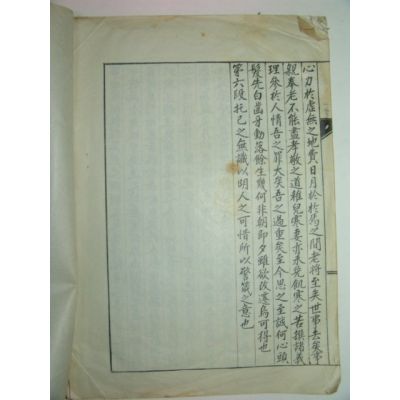 心力於虛無之地費日月於於烏之間老將至矣世事去矣事
親奉老不能盡孝敬之道稚兒寒妻亦未免飢寒之苦撰諸義
理參於人情吾之罪大矣吾之過重矣至今思之至誠何心頭
髮先白齒牙動落餘生幾何非朝即夕雖欲改遷烏可得也
第六段托已之無識以明人之可惜所以警箴之意也